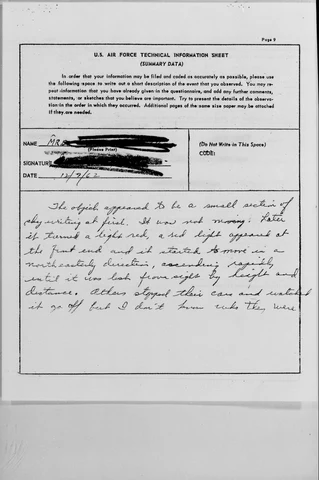 Page 9
U.S. AIR FORCE TECHNICAL INFORMATION SHEET
(SUMMARY DATA)
In order that your information may be filed and coded as accurately as possible, please use
the following space to write out a short description of the event that you observed. You may re-
peat information that you have already given in the questionnaire, and add any further comments,
statements, or sketches that you believe are important. Try to present the details of the observa-
tion in the order in which they occurred. Additional pages of the same size paper may be attached
if they are needed.
NAME MR
(Please Print)
SIGNATURE
DATE 12/9/62
(Do Not Write in This Space)
CODE:
The object appeared to be a small section of
sky writing at first. It was not moving. Later
it turned a light red, a red light appeared at
the front end and it started to move in a
northeasterly direction, ascending rapidly
until it was lost from sight by height and
distance. Others stopped their cars and watched
it go off but I don't know who they were